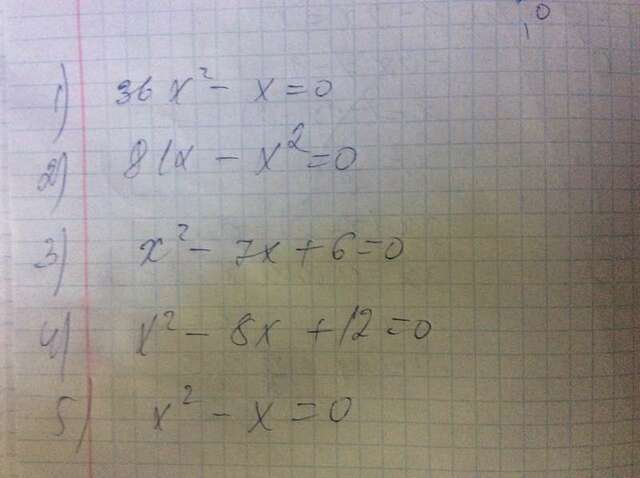 1) 36x² - x = 0
2) 81x - x² = 0
3) x² - 7x + 6 = 0
4) x² - 8x + 12 = 0
5) x² - x = 0